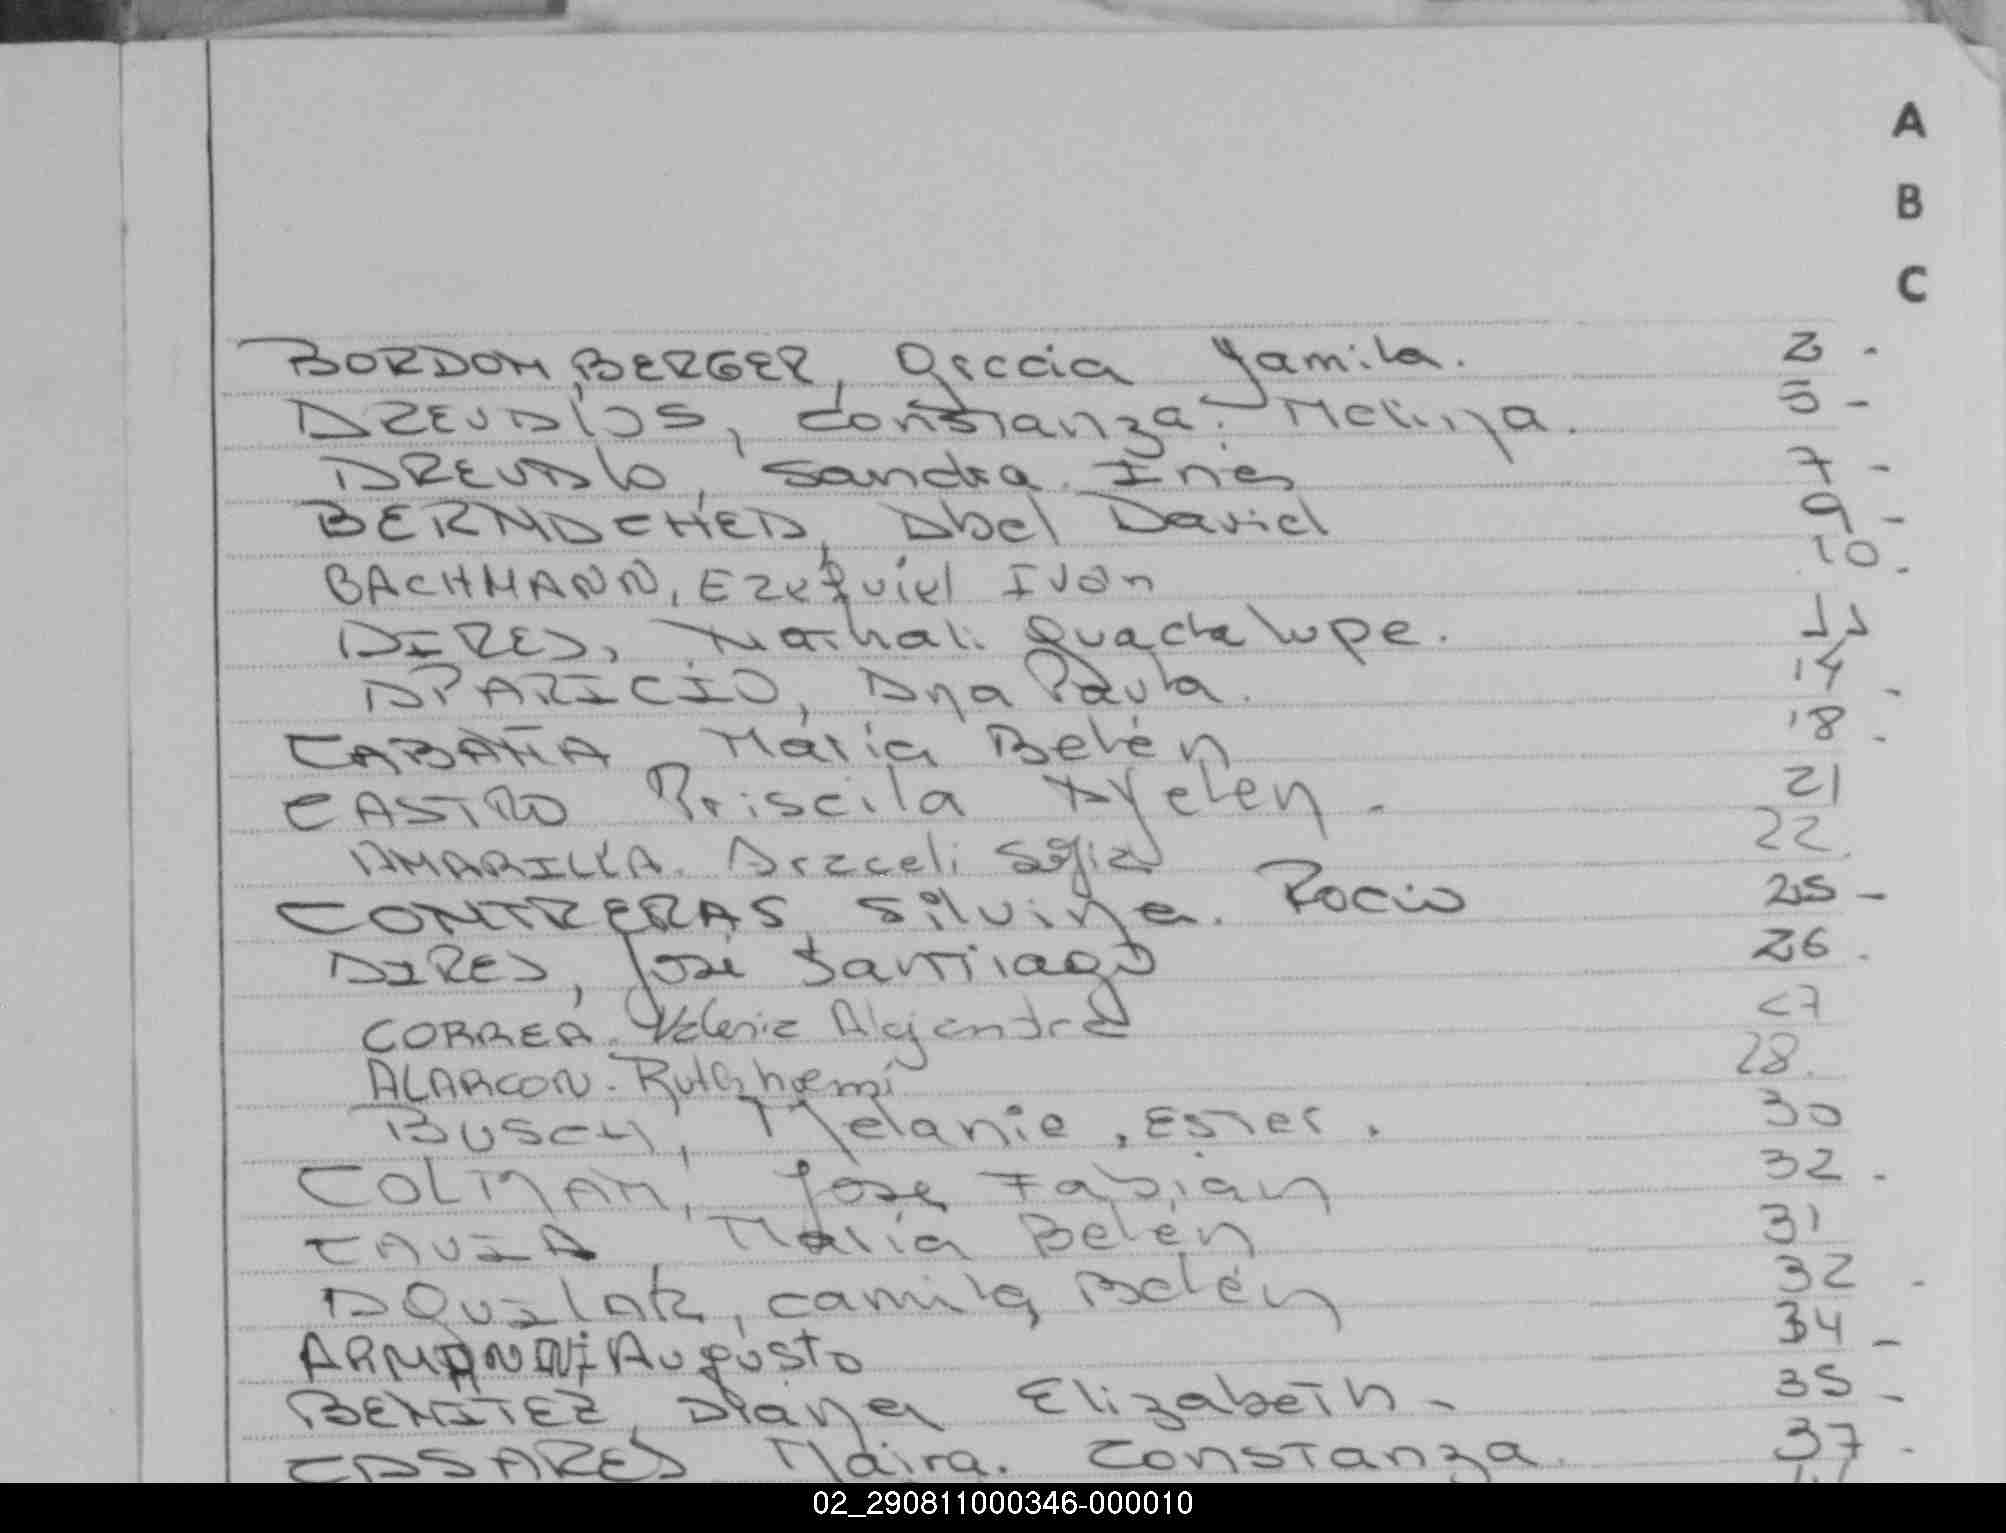 A
B
C
BORDOM BERGER, Greccia Yamila. 2 -
AREVALOS, Constanza. Melina. 5 -
AREVALO, Sandra Inés 7 -
BERNACHEA, Abel David 9 -
BACHMANN, Ezequiel Ivan 10.
AIRES, Nathali Guadalupe. 11
APARICIO, Ana Paula. 14 -
CABAÑA María Belén 18 -
CASTRO Priscila Ayelen. 21
AMARILLA. Araceli Sofia 22.
CONTRERAS Silvina. Rocio 25 -
AIRES, José Santiago 26 .
CORREA. Valeria Alejandra 27
ALARCON. Ruth noemi 28.
BUSCH, Melanie, Ester. 30
COLMAN, José Fabián 32 -
CAVIA María Belén 31
AQUILAR, Camila, Belén 32 -
ARMANNI, Augusto 34 -
BENITEZ, Diana Elizabeth - 35 -
CASARES Maira. Constanza. 37 -
02_290811000346-000010